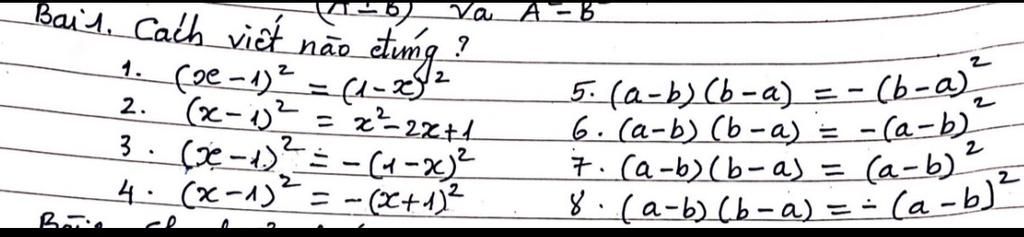 (A-B) và A-B
Bài 1. Cách viết nào đúng?
1. (x-1)² = (1-x)²
2. (x-1)² = x²-2x+1
3. (x-1)² = -(1-x)²
4. (x-1)² = -(x+1)²
5. (a-b)(b-a) = -(b-a)²
6. (a-b)(b-a) = -(a-b)²
7. (a-b)(b-a) = (a-b)²
8. (a-b)(b-a) = - (a-b)²